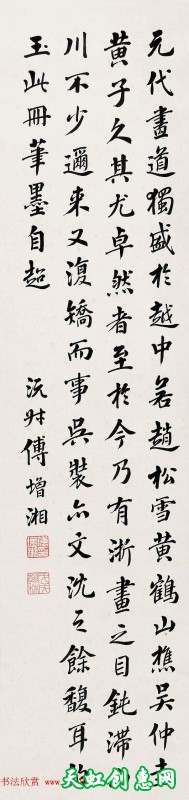 元代畫道獨盛於越中若趙松雪黃鶴山樵吳仲圭
黃子久其尤卓然者至於今乃有浙畫之目鈍滯
川不少邇來又復矯而事吳裝亦文沈之餘馥耳
玉此冊筆墨自超
沅叔傅增湘
书法欣赏
天虹创意网